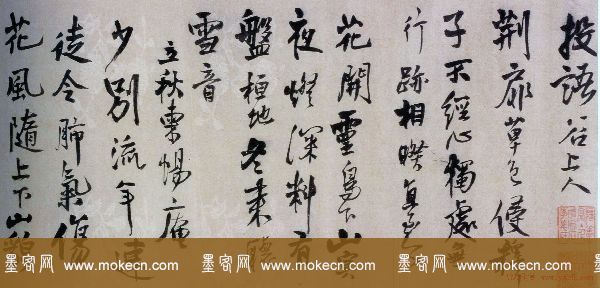 投語谷上人
荊扉草色侵
子不經心獨處
行跡相暌
花開靈鳥下山實
夜燈深料有
盤桓地冬來聽
雪音
立秋柬惕庵
少別流年速
徒令肺氣傷
花風隨上下山
墨客网 www.mokecn.com 墨客网 www.mokecn.com 墨客网 www.mokecn.com